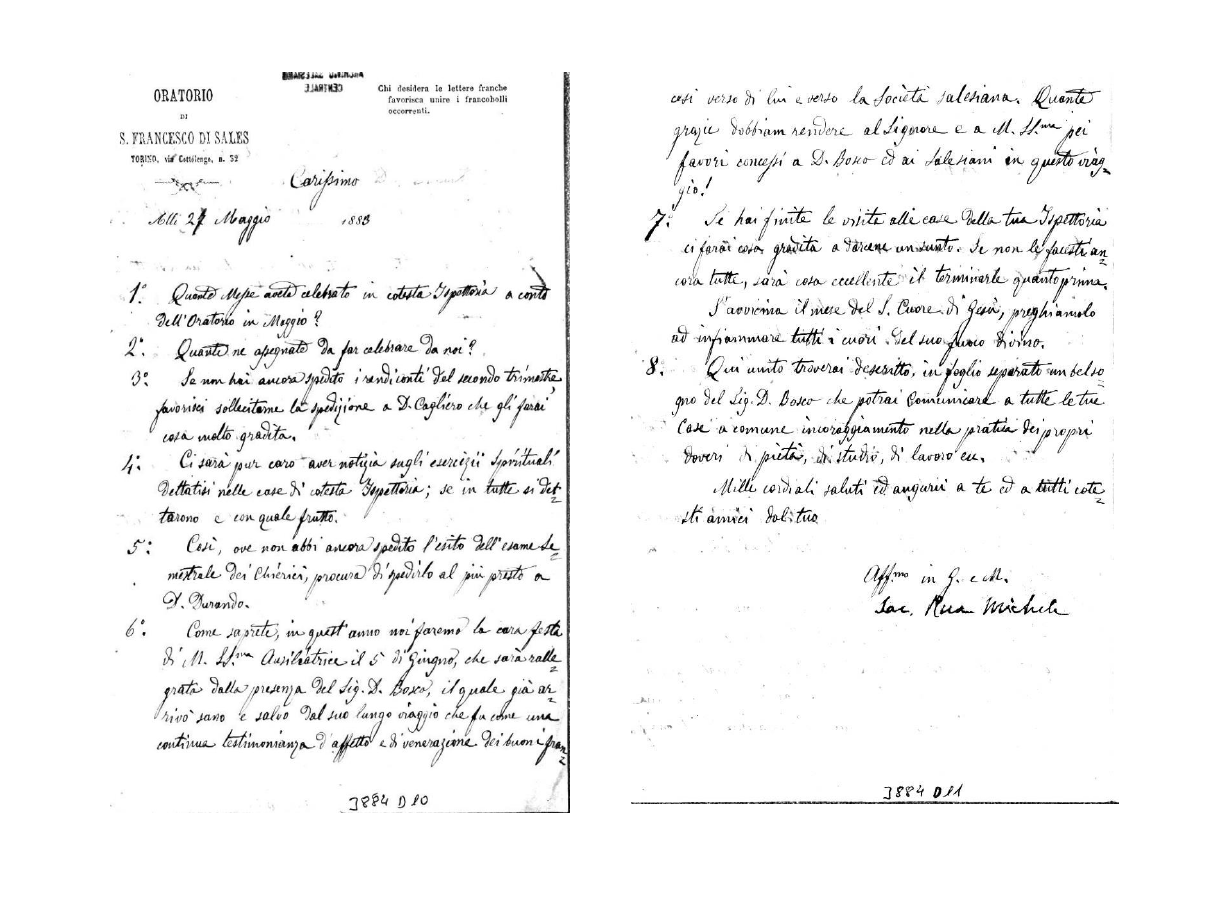 ARCHIVIO SALESIANO
CENTRALE
ORATORIO
DI
S. FRANCESCO DI SALES
TORINO, via Cottolengo, n. 32
Chi desidera le lettere franche
favorisca unire i francobolli
occorrenti.
Carissimo
Alli 27 Maggio 1883
1° Quante Messe avete celebrato in cotesta Ispettoria a conto
dell'Oratorio in Maggio?
2° Quante ne assegnate da far celebrare da noi?
3° Se non hai ancora spedito i rendiconti del secondo trimestre,
favorisci sollecitarne la spedizione a D. Cagliero che gli farai
cosa molto gradita.
4° Ci sarà pur caro aver notizia sugli esercizii Spirituali
dettatisi nelle case di cotesta Ispettoria; se in tutte si det=
tarono e con quale frutto.
5° Così, ove non abbi ancora spedito l'esito dell'esame se=
mestrale dei Chierici, procura di spedirlo al più presto a
D. Durando.
6° Come saprete, in quest'anno noi faremo la cara festa
di M. SS.ma Ausiliatrice il 5 di Giugno, che sarà ralle=
grata dalla presenza del Sig. D. Bosco, il quale già ar=
rivò sano e salvo dal suo lungo viaggio che fu come una
continua testimonianza d'affetto e di venerazione dei buoni fran=
3884 D10
cesi verso di lui e verso la Società salesiana. Quante
grazie dobbiam rendere al Signore e a M. SS.ma pei
favori concessi a D. Bosco ed ai Salesiani in questo viag=
gio!
7° Se hai finite le visite alle case della tua Ispettoria
ci farai cosa gradita a darcene un sunto. Se non le facesti an=
cora tutte, sarà cosa eccellente il terminarle quanto prima.
S'avvicina il mese del S. Cuore di Gesù, preghiamolo
ad infiammare tutti i cuori del suo fuoco divino.
8. Qui unito troverai descritto, in foglio separato un bel so=
gno del Sig. D. Bosco che potrai comunicare a tutte le tue
Case a comune incoraggiamento nella pratica dei propri
doveri di pietà, di studio, di lavoro ecc.
Mille cordiali saluti ed augurii a te ed a tutti cote=
sti amici dal tuo
Aff.mo in G. e M.
Sac. Rua Michele
3884 D11